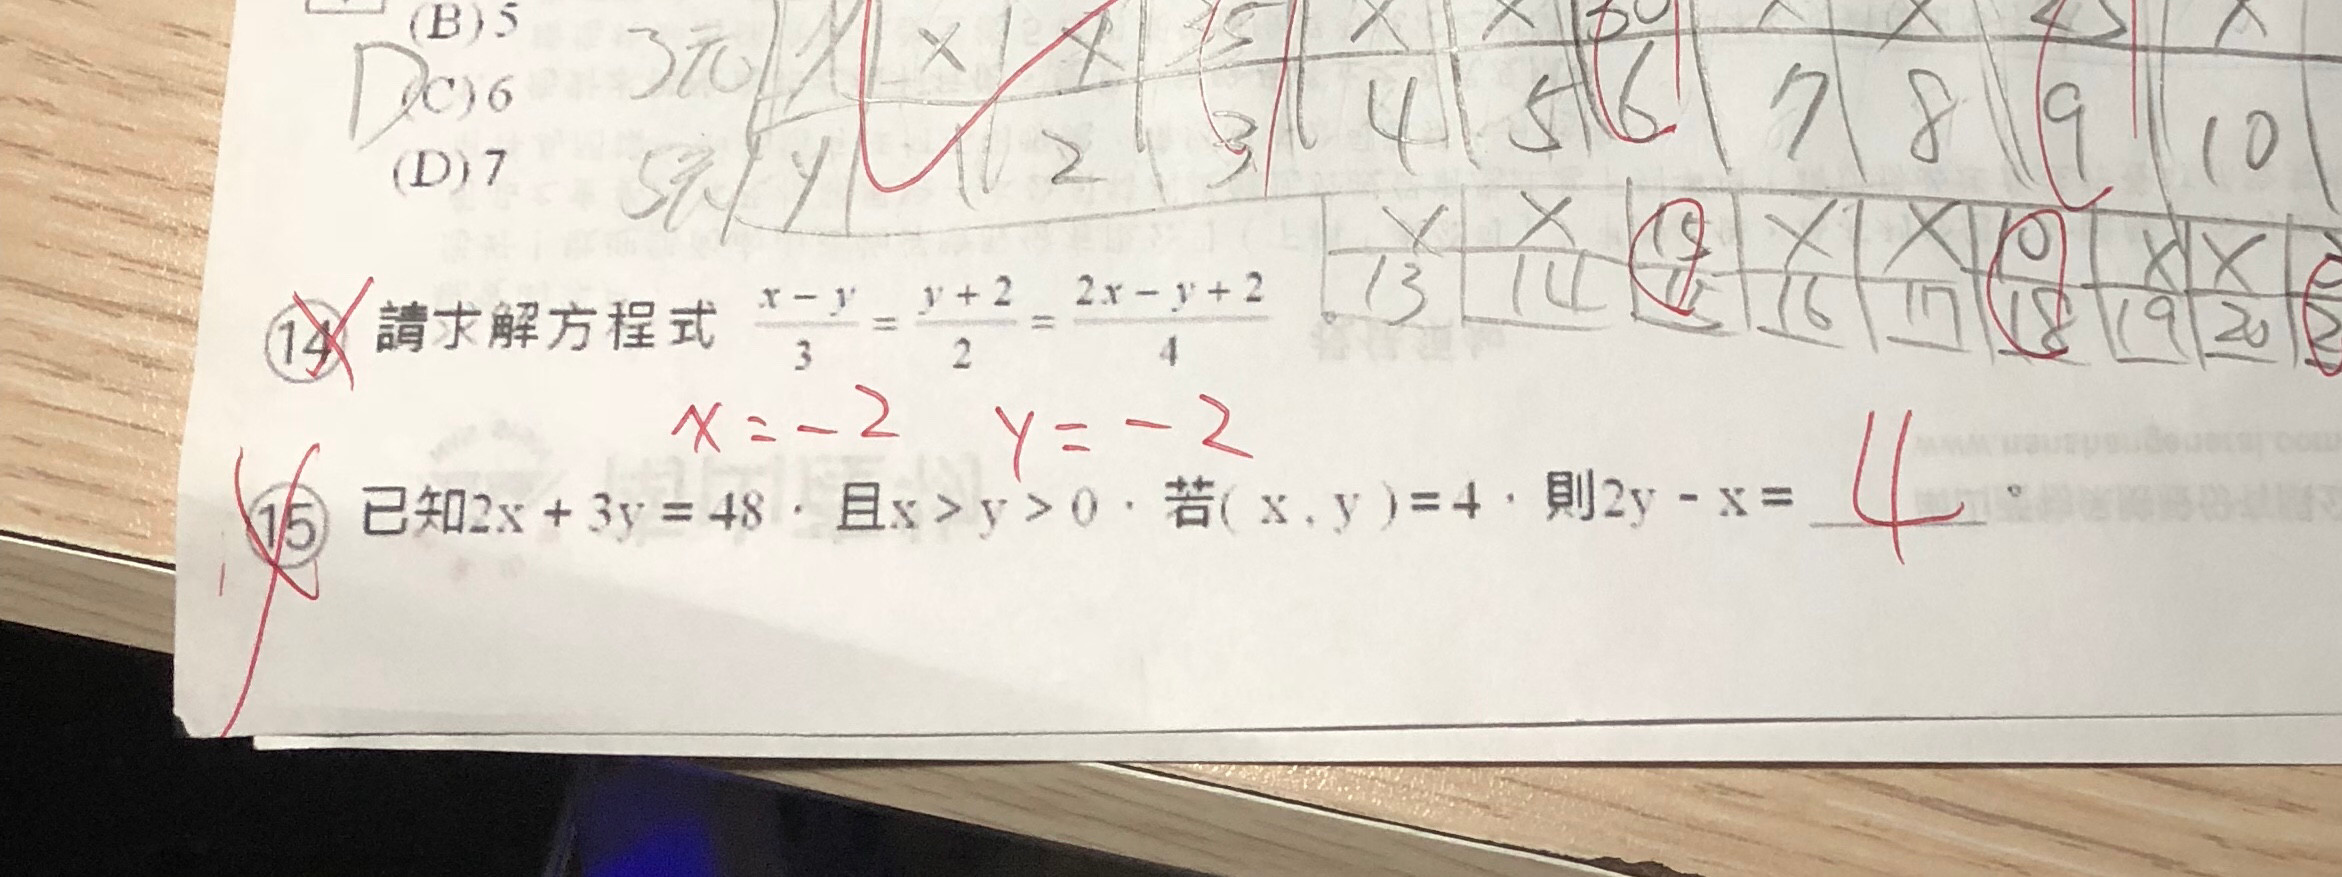 (B)5
(C)6
(D)7
D
3元 x x x 15 x x 30 x x 45 x
5元 y 1 2 3 4 5 6 7 8 9 10
x x 15 x x 0 x x
13 14 15 16 17 18 19 20
14 請求解方程式 (x-y)/3 = (y+2)/2 = (2x-y+2)/4
x=-2 y=-2
15 已知2x+3y=48，且x>y>0，若(x,y)=4，則2y-x=4。